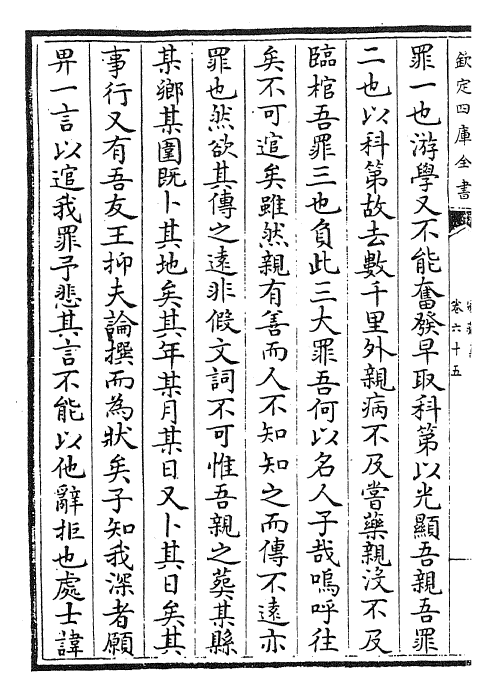 欽定四庫全書
卷六十五
罪一也游學又不能奮發早取科第以光顯吾親吾罪
二也以科第故去數千里外親病不及嘗藥親沒不及
臨棺吾罪三也負此三大罪吾何以名人子哉嗚呼往
矣不可逭矣雖然親有善而人不知知之而傳不遠亦
罪也然欲其傳之遠非假文詞不可惟吾親之葬某縣
某鄉某圍既卜其地矣其年某月某日又卜其日矣其
事行又有吾友王抑夫論撰而為狀矣子知我深者願
畀一言以逭我罪予悲其言不能以他辭拒也處士諱